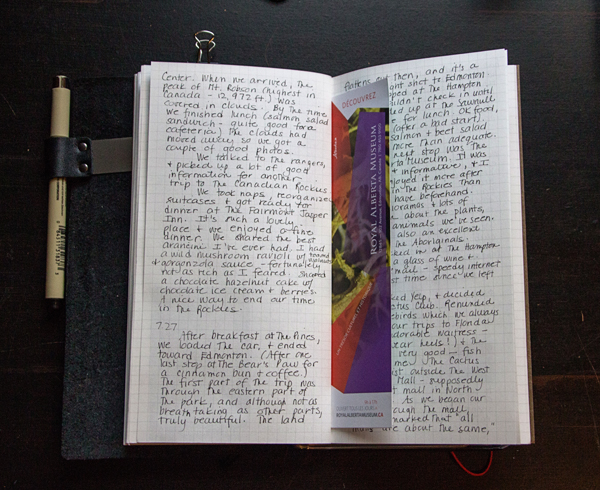 Center. When we arrived, the
peak of Mt. Robson (highest in
Canada - 12,972 ft.) was
covered in clouds. By the time
we finished lunch (salmon salad
sandwich - quite good for a
cafeteria) the clouds had
moved away so we got a
couple of good photos.
We talked to the rangers,
+ picked up a lot of good
information for another
trip to the Canadian Rockies.
We took naps, reorganized
suitcases + got ready for
dinner at the Fairmont Jasper
Inn. It's such a lovely
place + we enjoyed a fine
dinner. We shared the best
arancini I've ever had. I had
a wild mushroom ravioli w/ toasted walnuts
+ gorgonzola sauce - fortunately
not as rich as I feared. Shared
a chocolate hazelnut cake w/
chocolate ice cream + berries.
A nice way to end our time
in the Rockies.
7.27
After breakfast at The Pines,
we loaded the car, + ended
toward Edmonton. (After one
last stop at the Bear's Paw for
a cinnamon bun + coffee.)
The first part of the trip was
through the eastern part of
the park, and although not as
breathtaking as other parts,
truly beautiful. The land
flattens out then, and it's a
ght shot to Edmonton.
ped at the Hampton
uldn't check in until
ed up at the Sawmill
e for lunch. OK food,
(after a bad start).
salmon + beet salad
more than adequate.
next stop was the
ta Museum. It was
+ informative, + I
njoyed it more after
in the Rockies than
have beforehand.
ioramas + lots of
about the plants,
animals we've seen.
also an excellent
the Aboriginals.
ked into the Hampton
a glass of wine +
mail - speedy internet
st time since we left
ed Yelp, + decided
ctus Club. Renunded
ebirds which we always
our trips to Florida
dorable waitress -
ear heels!) + the
very good - fish
me. The Cactus
st outside the West
Mall - supposedly
t mall in North
As we began our
ough the mall,
marked that "all
malls are about the same,"
DÉCOUVREZ
ROYAL ALBERTA MUSEUM
ROYALALBERTAMUSEUM.CA